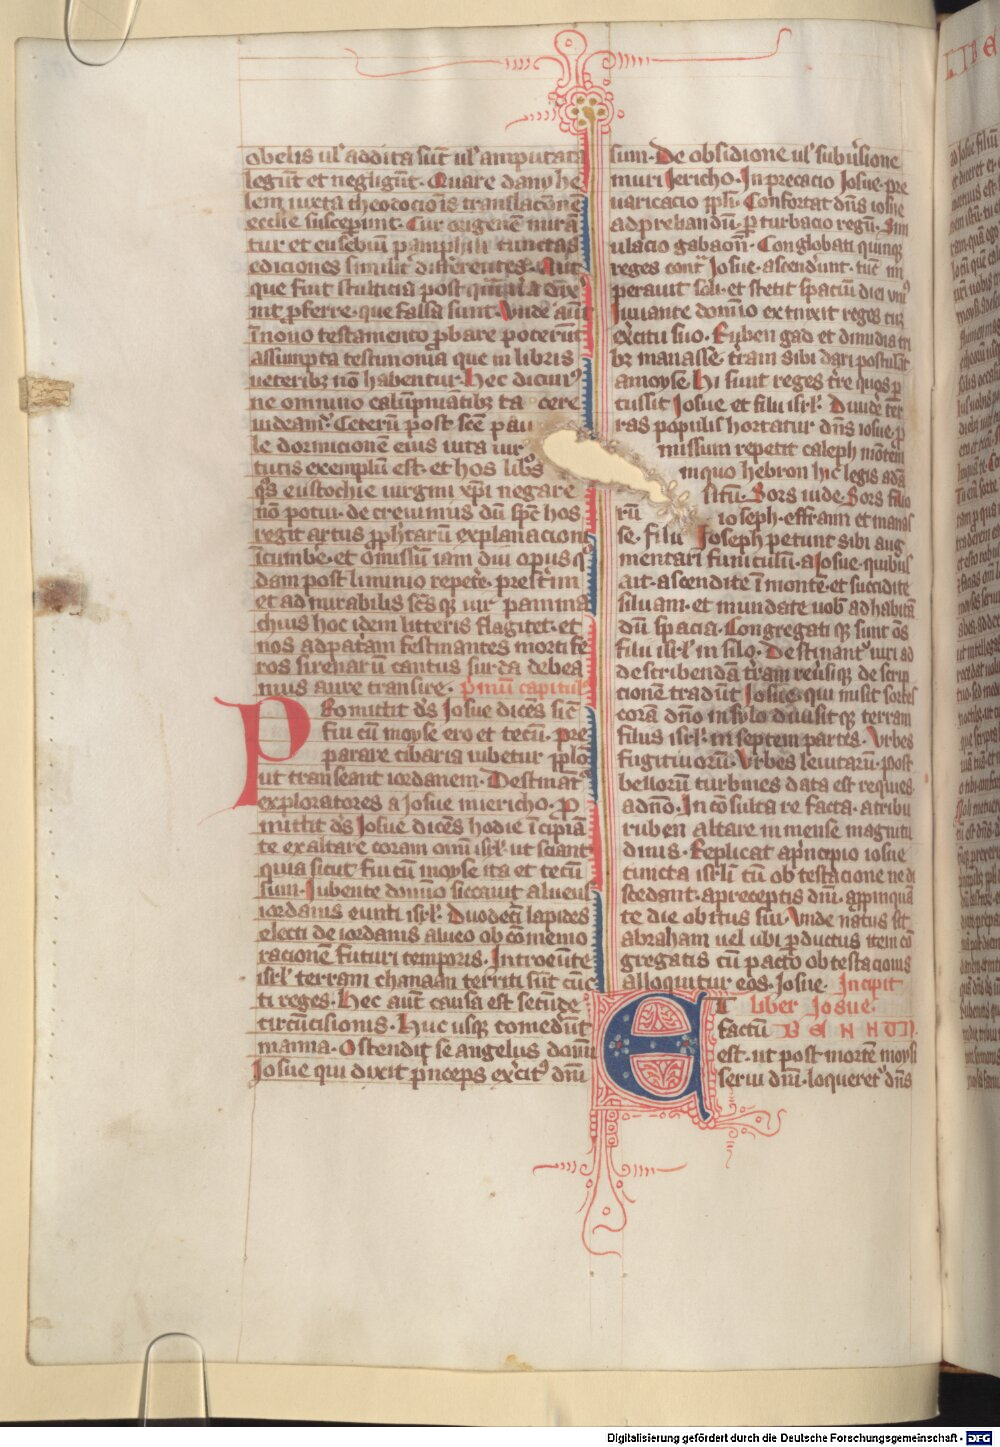 obelis ul' addita sūt ul' amputata
legūt et negligūt. Quare dany he
lem iuxta theodocionis translacionē
ecclie suscepunt. Cur origenē mirā
tur et eusebiū pamphili cunctas
ediciones similit' differentes. Aut
que fuit stulticia post
nt pferre. que falsa sunt. Unde aūt
ī nouo testamento pbare poterūt
assumpta testimonia que in libris
ueteribz nō habentur. Hec dicim9
ne omnino calūpniatibz ta cere
uideam'. Ceterū post scē pau
le dormicionē cuius uita uir
tutis exemplū est. et hos libr9
q's eustochie uirgini xp̄i negare
nō potui. decreuimus dū sp̄c hos
regit artus pphtarū explanacioni
īcumbe'. et omissū iam diu opus q'
dam post liminio repete'. presertim
et ad mirabilis scs q3 uir pamma
chius hoc idem litteris flagitet. et
nos ad patriam festinantes mortife
ros sirenarū cantus surda debea
mus aure transire. p'mū capitul'
Promittit d's Josue dices sic
fui cū moyse ero et tecū. pre
parare cibaria iubetur pplo
ut transeant iordanem. Destinat'
exploratores a Josue iniericho. p
mittit d's Josue dicēs hodie īcipiā
te exaltare coram omī isrl'. ut sciant
quia sicut fui cū moyse ita et tecū
sum. Jubente domino siccauit alueus
iordanis eunti isrl'. Duodecī lapides
electi de iordanis alueo ob cōmemo
racionē futuri temporis. Introeūte
isrl' terram chanaan territi sūt cūc
ti reges. Hec aut causa est secūde
circūcisionis. Huc usq3 comedūt
manna. Ostendit se angelus domī
Josue qui dixit pnceps exercit9 dnī
sum. De obsidione ul' subūsione
muri Jericho. Inprecacio Josue. pre
uaricacio pph'. Confortat dns iosue
ad prehandū. pturbacio regū. Sim
ulacio gabaon'. Conglobati quinq3
reges contra Josue. ascendunt. tūc im
perauit soli. et stetit spaciū diei uni9
Juuante domino extinxit reges cū
exercitu suo. Ruben gad et dimidia tri
b3 manasse. tram sibi dari postulāt
amoyse. Hi sunt reges tre quos p
cussit Josue et filii isrl'. Diuide ter
ras populis hortatur dns iosue. p
missum repetit caleph montem
in quo hebron hic legis ada
situ. Sors iude. Sors filio
rū ioseph. effraim et manas
se. filii Joseph petunt sibi aug
mentari funiculū. a Josue. quibus
ait. ascendite ī montē. et succidite
siluam. et mundate uob' ad habitā
dū spacia. Congregati q3 sunt oēs
filii isrl' in silo. Destinant' uiri ad
describendā tram reūsiq3 descrip
cionē tradūt Josue. qui misit sortes
corā dno in sylo diuisit q3 terram
filiis isrl' in septem partes. Urbes
fugitiuorū. Urbes leuitarū. post
bellorū turbines data est requies
a dno. Inconsulta re facta. a tribu
ruben altare in mense magnitu
dinis. Replicat a principio iosue
cuncta isrli cū ob testacione ne di
scedant. a preceptis dnī. appinqua
te die obitus sui. Unde natus sit
abraham uel ubi pductus item cō
gregatis cū pacto obtestacionis
alloquitur eos. Josue. Incipit
ET liber Josue.
factū BENNUN.
est. ut post mortem moysi
serui dnī. loqueret' dns
LIBE
Digitalisierung gefördert durch die Deutsche Forschungsgemeinschaft - DFG